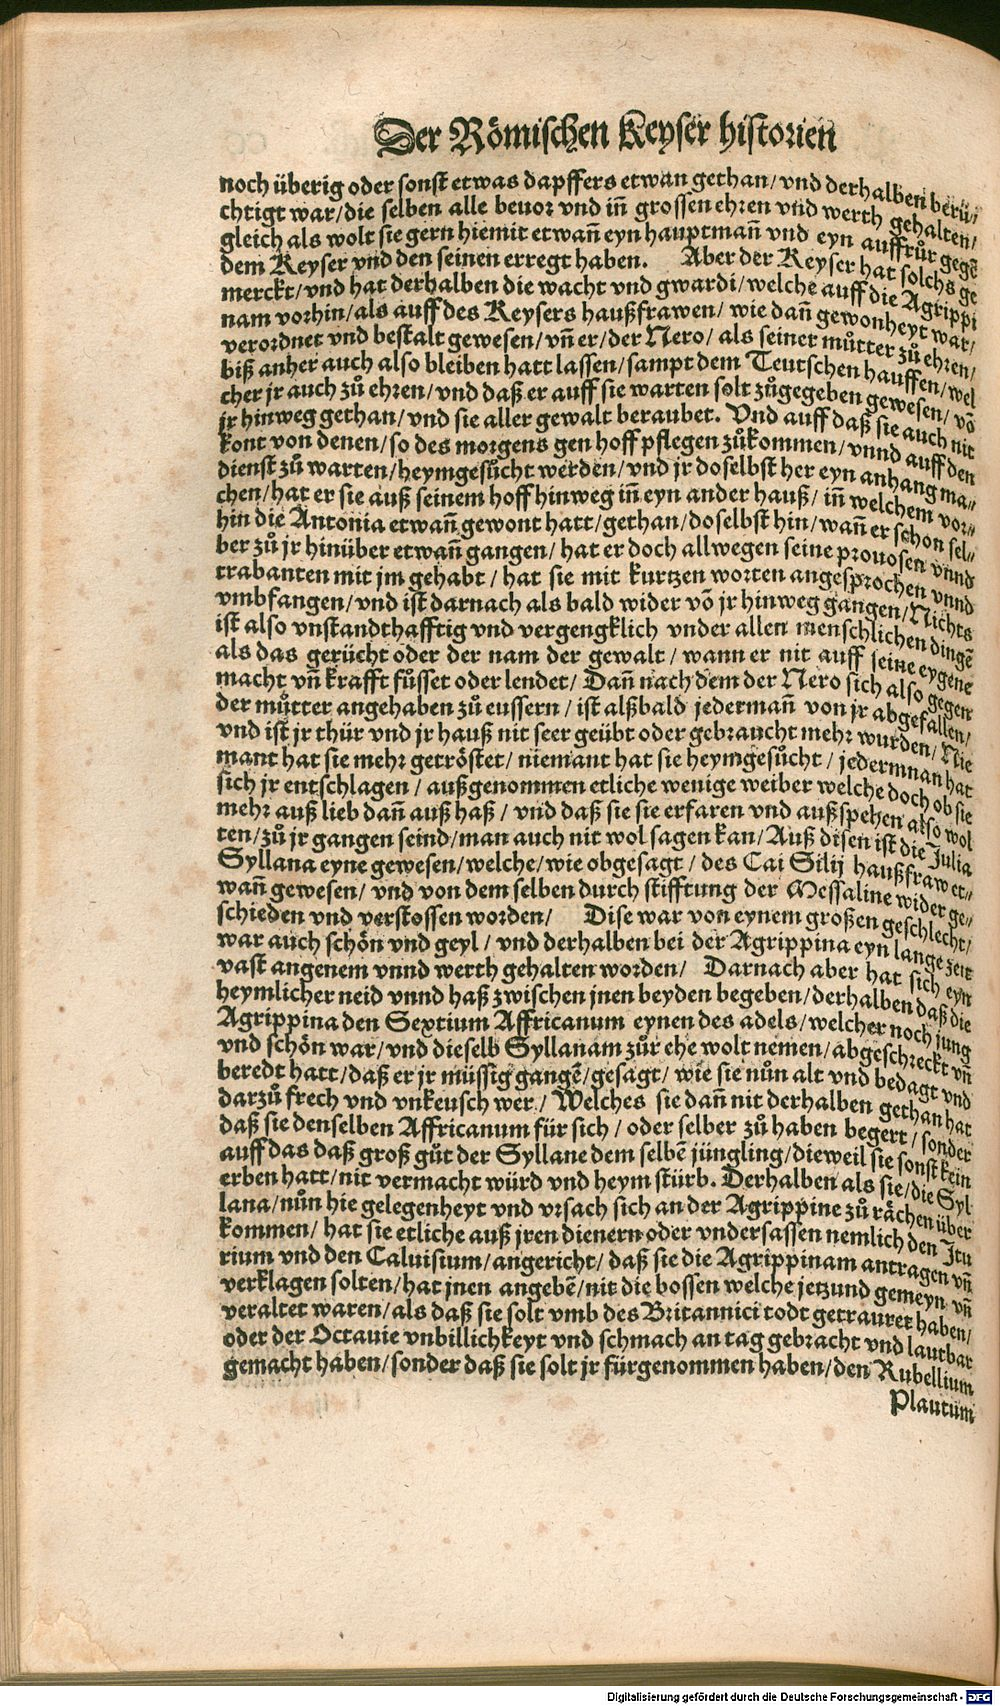 Der Römischen Keyser historien
noch überig oder sonst etwas dapffers etwan gethan/ vnd derhalben berü/
chtigt war/die selben alle beuor vnd iñ grossen ehren vnd werth gehalten/
gleich als wolt sie gern hiemit etwañ eyn hauptmañ vnd eyn auffrůr gegẽ
dem Keyser vnd den seinen erregt haben. Aber der Keyser hat solchs ge
merckt/vnd hat derhalben die wacht vnd gwardi/welche auff die Agrippi
nam vorhin/als auff des Keysers haußfrawen/ wie dañ gewonheyt war/
verordnet vnd bestalt gewesen/ vñ er/der Nero/ als seiner můtter zů ehren/
biß anher auch also bleiben hatt lassen/sampt dem Teutschen hauffen/wel
cher jr auch zů ehren/vnd daß er auff sie warten solt zůgegeben gewesen/ võ
jr hinweg gethan/vnd sie aller gewalt beraubet. Vnd auff daß sie auch nit
kont von denen/so des morgens gen hoff pflegen zůkommen/vnnd auff den
dienst zů warten/heymgesůcht werden/vnd jr doselbst her eyn anhang ma⸗
chen/hat er sie auß seinem hoff hinweg iñ eyn ander hauß/ iñ welchem vor⸗
hin die Antonia etwañ gewont hatt/gethan/doselbst hin/wañ er schon sel⸗
ber zů jr hinüber etwañ gangen/ hat er doch allwegen seine prouosen vnnd
trabanten mit jm gehabt/ hat sie mit kurtzen worten angesprochen vnnd
vmbfangen/vnd ist darnach als bald wider võ jr hinweg gangen/Nichts
ist also vnstandthafftig vnd vergengklich vnder allen menschlichen dingẽ
als das gerücht oder der nam der gewalt/ wann er nit auff seine eygene
macht vñ krafft fůsset oder lendet/ Dañ nach dem der Nero sich also gegen
der můtter angehaben zů eussern/ ist alßbald jedermañ von jr abgefallen/
vnd ist jr thür vnd jr hauß nit seer geübt oder gebraucht mehr wurden/ Nie
mant hat sie mehr getröstet/ niemant hat sie heymgesůcht/ jedermnan hat
sich jr entschlagen/ außgenommen etliche wenige weiber welche doch ob sie
mehr auß lieb dañ auß haß/ vnd daß sie sie erfaren vnd außspehen also wol
ten/zů jr gangen seind/man auch nit wol sagen kan/Auß disen ist die Julia
Syllana eyne gewesen/welche/wie obgesagt/ des Cai Silij haußfraw et⸗
wañ gewesen/ vnd von dem selben durch stifftung der Messaline wider ge⸗
schieden vnd verstossen worden/ Dise war von eynem großen geschlecht/
war auch schön vnd geyl/ vnd derhalben bei der Agrippina eyn lange zeit
vast angenem vnnd werth gehalten worden/ Darnach aber hat sich eyn
heymlicher neid vnnd haß zwischen jnen beyden begeben/derhalben daß die
Agrippina den Sextium Affricanum eynen des adels/welcher noch jung
vnd schön war/vnd dieselb Syllanam zůr ehe wolt nemen/abgeschreckt vñ
beredt hatt/daß er jr müssig gangẽ/gesagt/ wie sie nůn alt vnd bedagt vnd
darzů frech vnd vnkeusch wer/ Welches sie dañ nit derhalben gethan hat
daß sie denselben Affricanum für sich/ oder selber zů haben begert/ sonder
auff das daß groß gůt der Syllane dem selbẽ jüngling/dieweil sie sonst kein
erben hatt/nit vermacht würd vnd heym stürb. Derhalben als sie/die Syl
lana/nůn hie gelegenheyt vnd vrsach sich an der Agrippine zů rächen über
kommen/ hat sie etliche auß jren dienern oder vndersassen nemlich den Itu
rium vnd den Caluisium/angericht/ daß sie die Agrippinam antragen vñ
verklagen solten/hat jnen angebẽ/nit die bossen welche jetzund gemeyn vñ
veraltet waren/als daß sie solt vmb des Britannici todt getrauret haben/
oder der Octauie vnbillichkeyt vnd schmach an tag gebracht vnd lautbar
gemacht haben/sonder daß sie solt jr fürgenommen haben/den Rubellium
Plautum
Digitalisierung gefördert durch die Deutsche Forschungsgemeinschaft - DFG